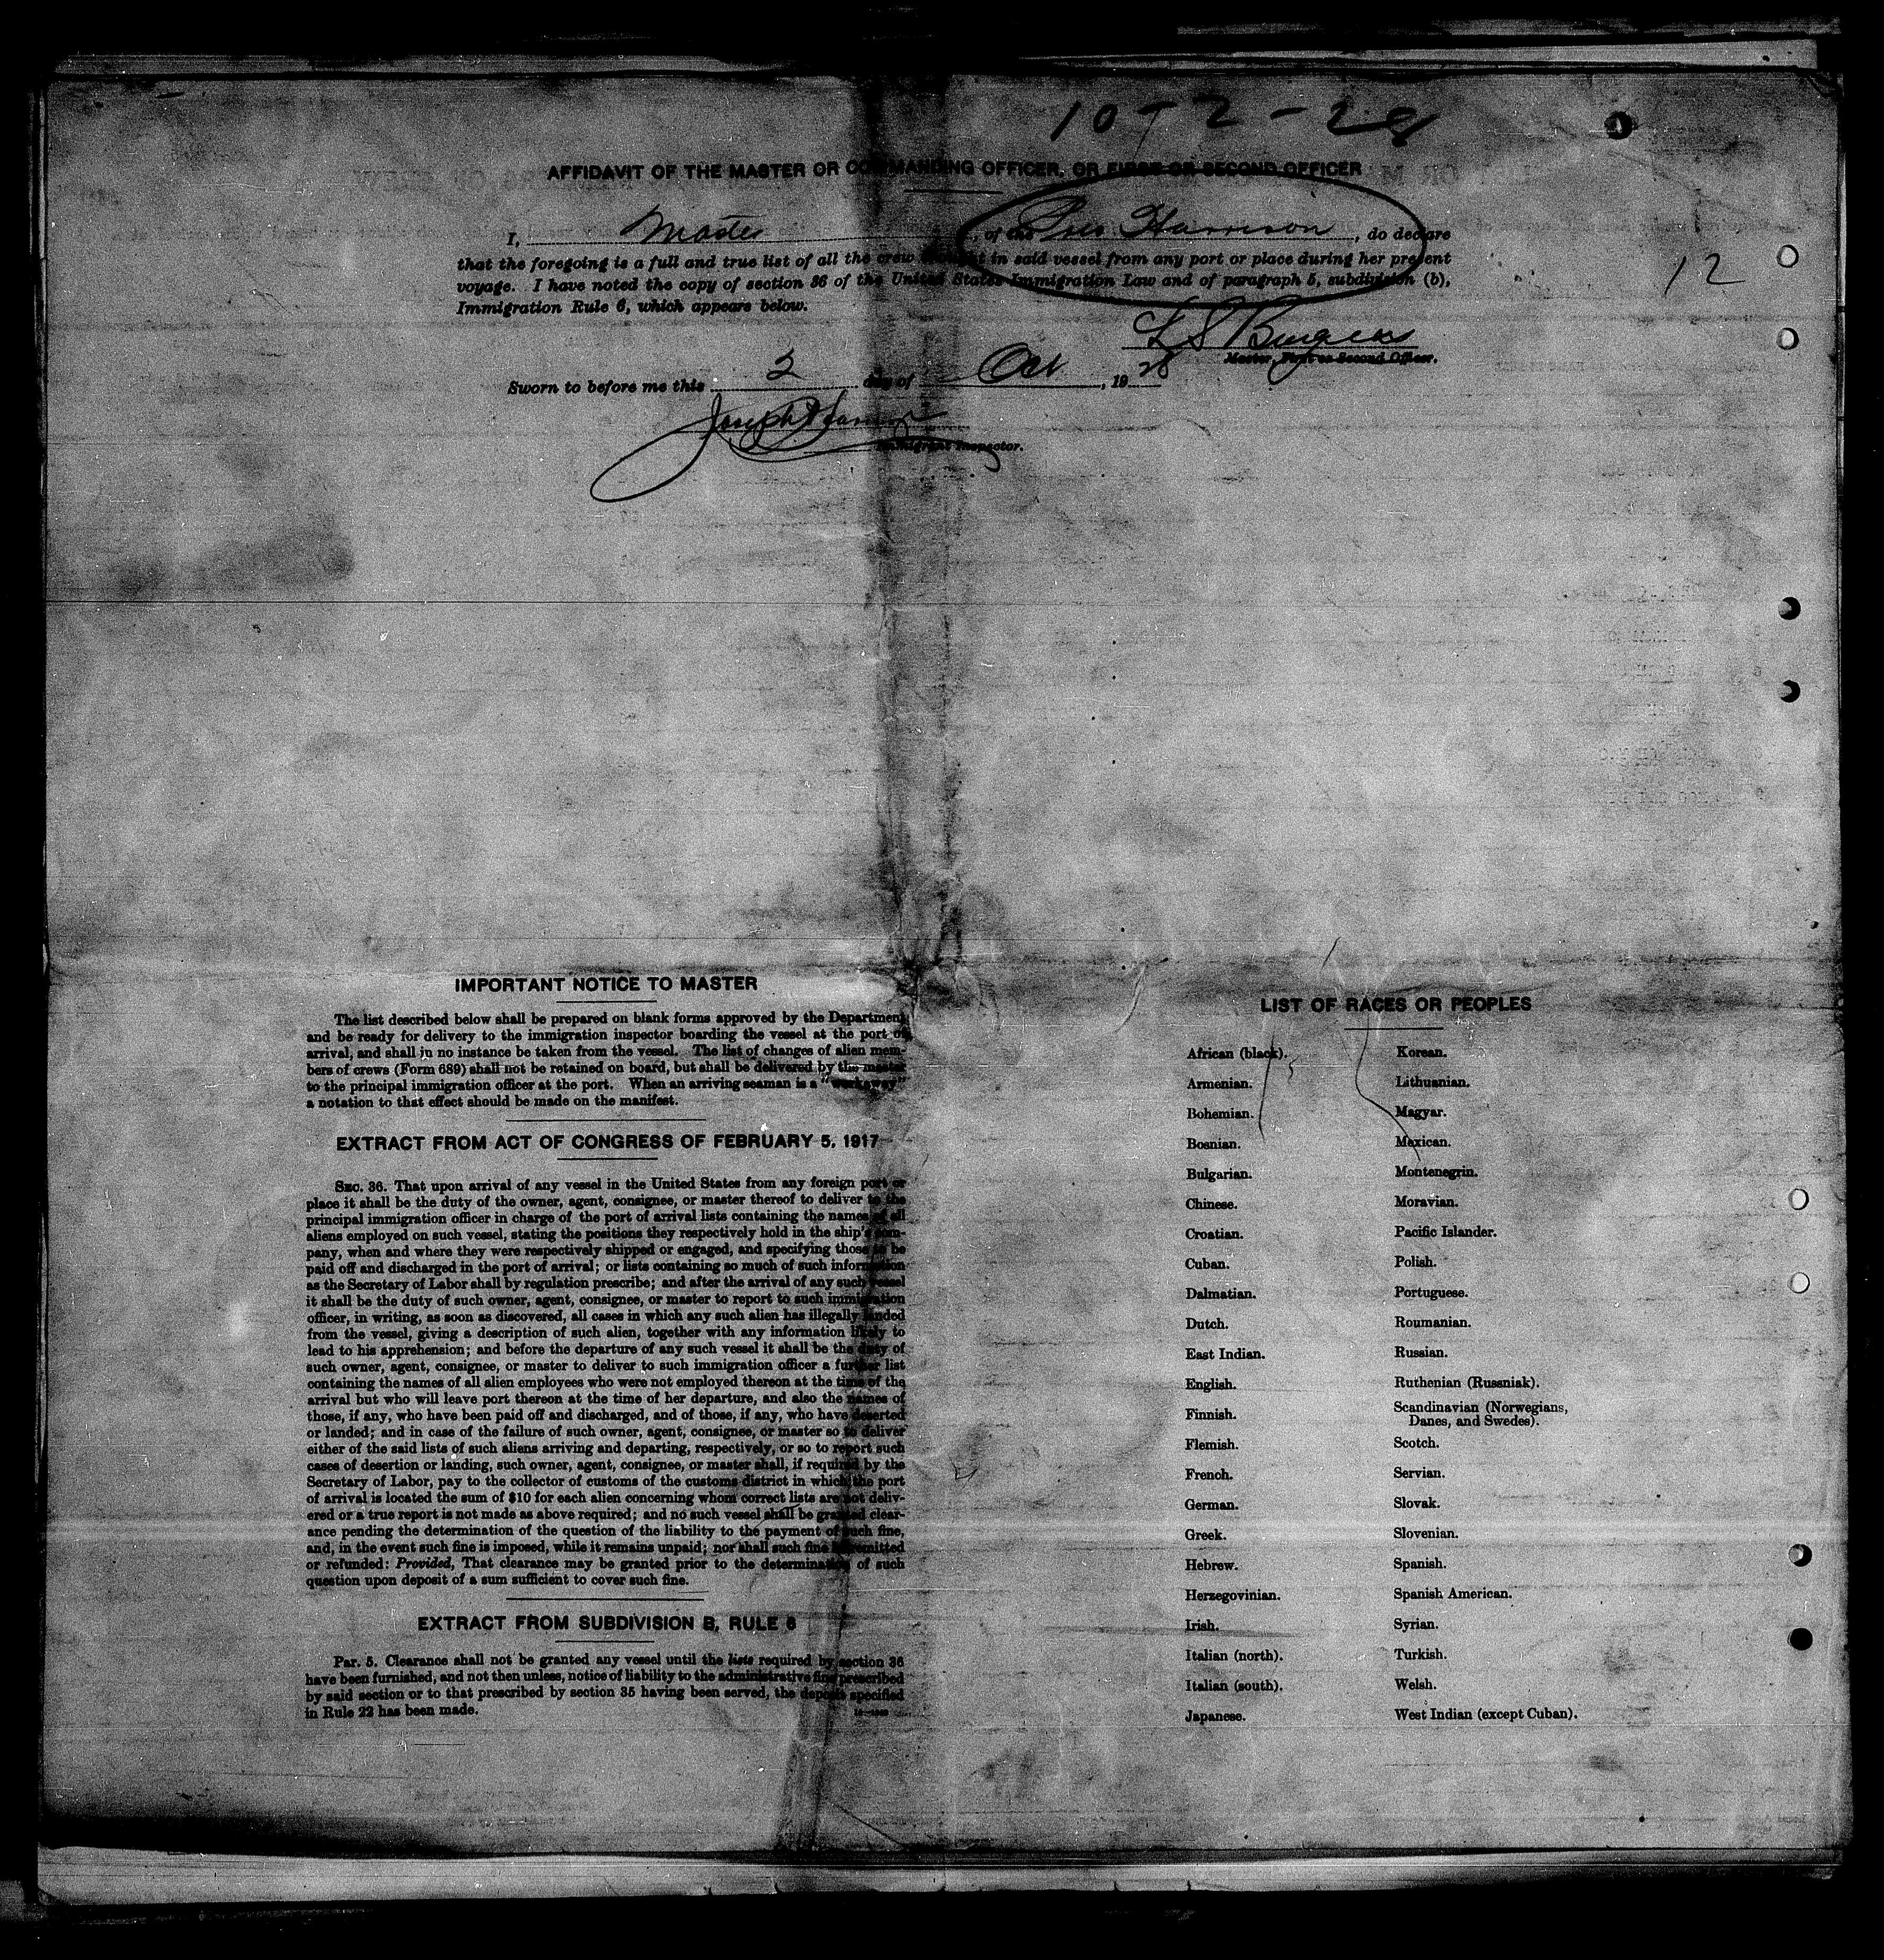 10-2-28
AFFIDAVIT OF THE MASTER OR COMMANDING OFFICER, OR FIRST OR SECOND OFFICER
I, Master, of the Pres Harrison, do declare
that the foregoing is a full and true list of all the crew brought in said vessel from any port or place during her present
voyage. I have noted the copy of section 36 of the United States Immigration Law and of paragraph 5, subdivision (b),
Immigration Rule 6, which appears below.
12
L S Burgess
Master, First or Second Officer.
Sworn to before me this 2 day of Oct, 1928
Joseph
Immigrant Inspector.
IMPORTANT NOTICE TO MASTER
The list described below shall be prepared on blank forms approved by the Department
and be ready for delivery to the immigration inspector boarding the vessel at the port of
arrival, and shall in no instance be taken from the vessel. The list of changes of alien mem-
bers of crews (Form 689) shall not be retained on board, but shall be delivered by the master
to the principal immigration officer at the port. When an arriving seaman is a "workaway"
a notation to that effect should be made on the manifest.
EXTRACT FROM ACT OF CONGRESS OF FEBRUARY 5, 1917
SEC. 36. That upon arrival of any vessel in the United States from any foreign port or
place it shall be the duty of the owner, agent, consignee, or master thereof to deliver to the
principal immigration officer in charge of the port of arrival lists containing the names of all
aliens employed on such vessel, stating the positions they respectively hold in the ship's com-
pany, when and where they were respectively shipped or engaged, and specifying those to be
paid off and discharged in the port of arrival; or lists containing so much of such information
as the Secretary of Labor shall by regulation prescribe; and after the arrival of any such vessel
it shall be the duty of such owner, agent, consignee, or master to report to such immigration
officer, in writing, as soon as discovered, all cases in which any such alien has illegally landed
from the vessel, giving a description of such alien, together with any information likely to
lead to his apprehension; and before the departure of any such vessel it shall be the duty of
such owner, agent, consignee, or master to deliver to such immigration officer a further list
containing the names of all alien employees who were not employed thereon at the time of the
arrival but who will leave port thereon at the time of her departure, and also the names of
those, if any, who have been paid off and discharged, and of those, if any, who have deserted
or landed; and in case of the failure of such owner, agent, consignee, or master so to deliver
either of the said lists of such aliens arriving and departing, respectively, or so to report such
cases of desertion or landing, such owner, agent, consignee, or master shall, if required by the
Secretary of Labor, pay to the collector of customs of the customs district in which the port
of arrival is located the sum of $10 for each alien concerning whom correct lists are not deliv-
ered or a true report is not made as above required; and no such vessel shall be granted clear-
ance pending the determination of the question of the liability to the payment of such fine,
and, in the event such fine is imposed, while it remains unpaid; nor shall such fine be remitted
or refunded: Provided, That clearance may be granted prior to the determination of such
question upon deposit of a sum sufficient to cover such fine.
EXTRACT FROM SUBDIVISION B, RULE 6
Par. 5. Clearance shall not be granted any vessel until the lists required by section 36
have been furnished, and not then unless, notice of liability to the administrative fine prescribed
by said section or to that prescribed by section 35 having been served, the deposit specified
in Rule 22 has been made.
LIST OF RACES OR PEOPLES
African (black).
Armenian.
Bohemian.
Bosnian.
Bulgarian.
Chinese.
Croatian.
Cuban.
Dalmatian.
Dutch.
East Indian.
English.
Finnish.
Flemish.
French.
German.
Greek.
Hebrew.
Herzegovinian.
Irish.
Italian (north).
Italian (south).
Japanese.
Korean.
Lithuanian.
Magyar.
Mexican.
Montenegrin.
Moravian.
Pacific Islander.
Polish.
Portuguese.
Roumanian.
Russian.
Ruthenian (Russniak).
Scandinavian (Norwegians,
Danes, and Swedes).
Scotch.
Servian.
Slovak.
Slovenian.
Spanish.
Spanish American.
Syrian.
Turkish.
Welsh.
West Indian (except Cuban).